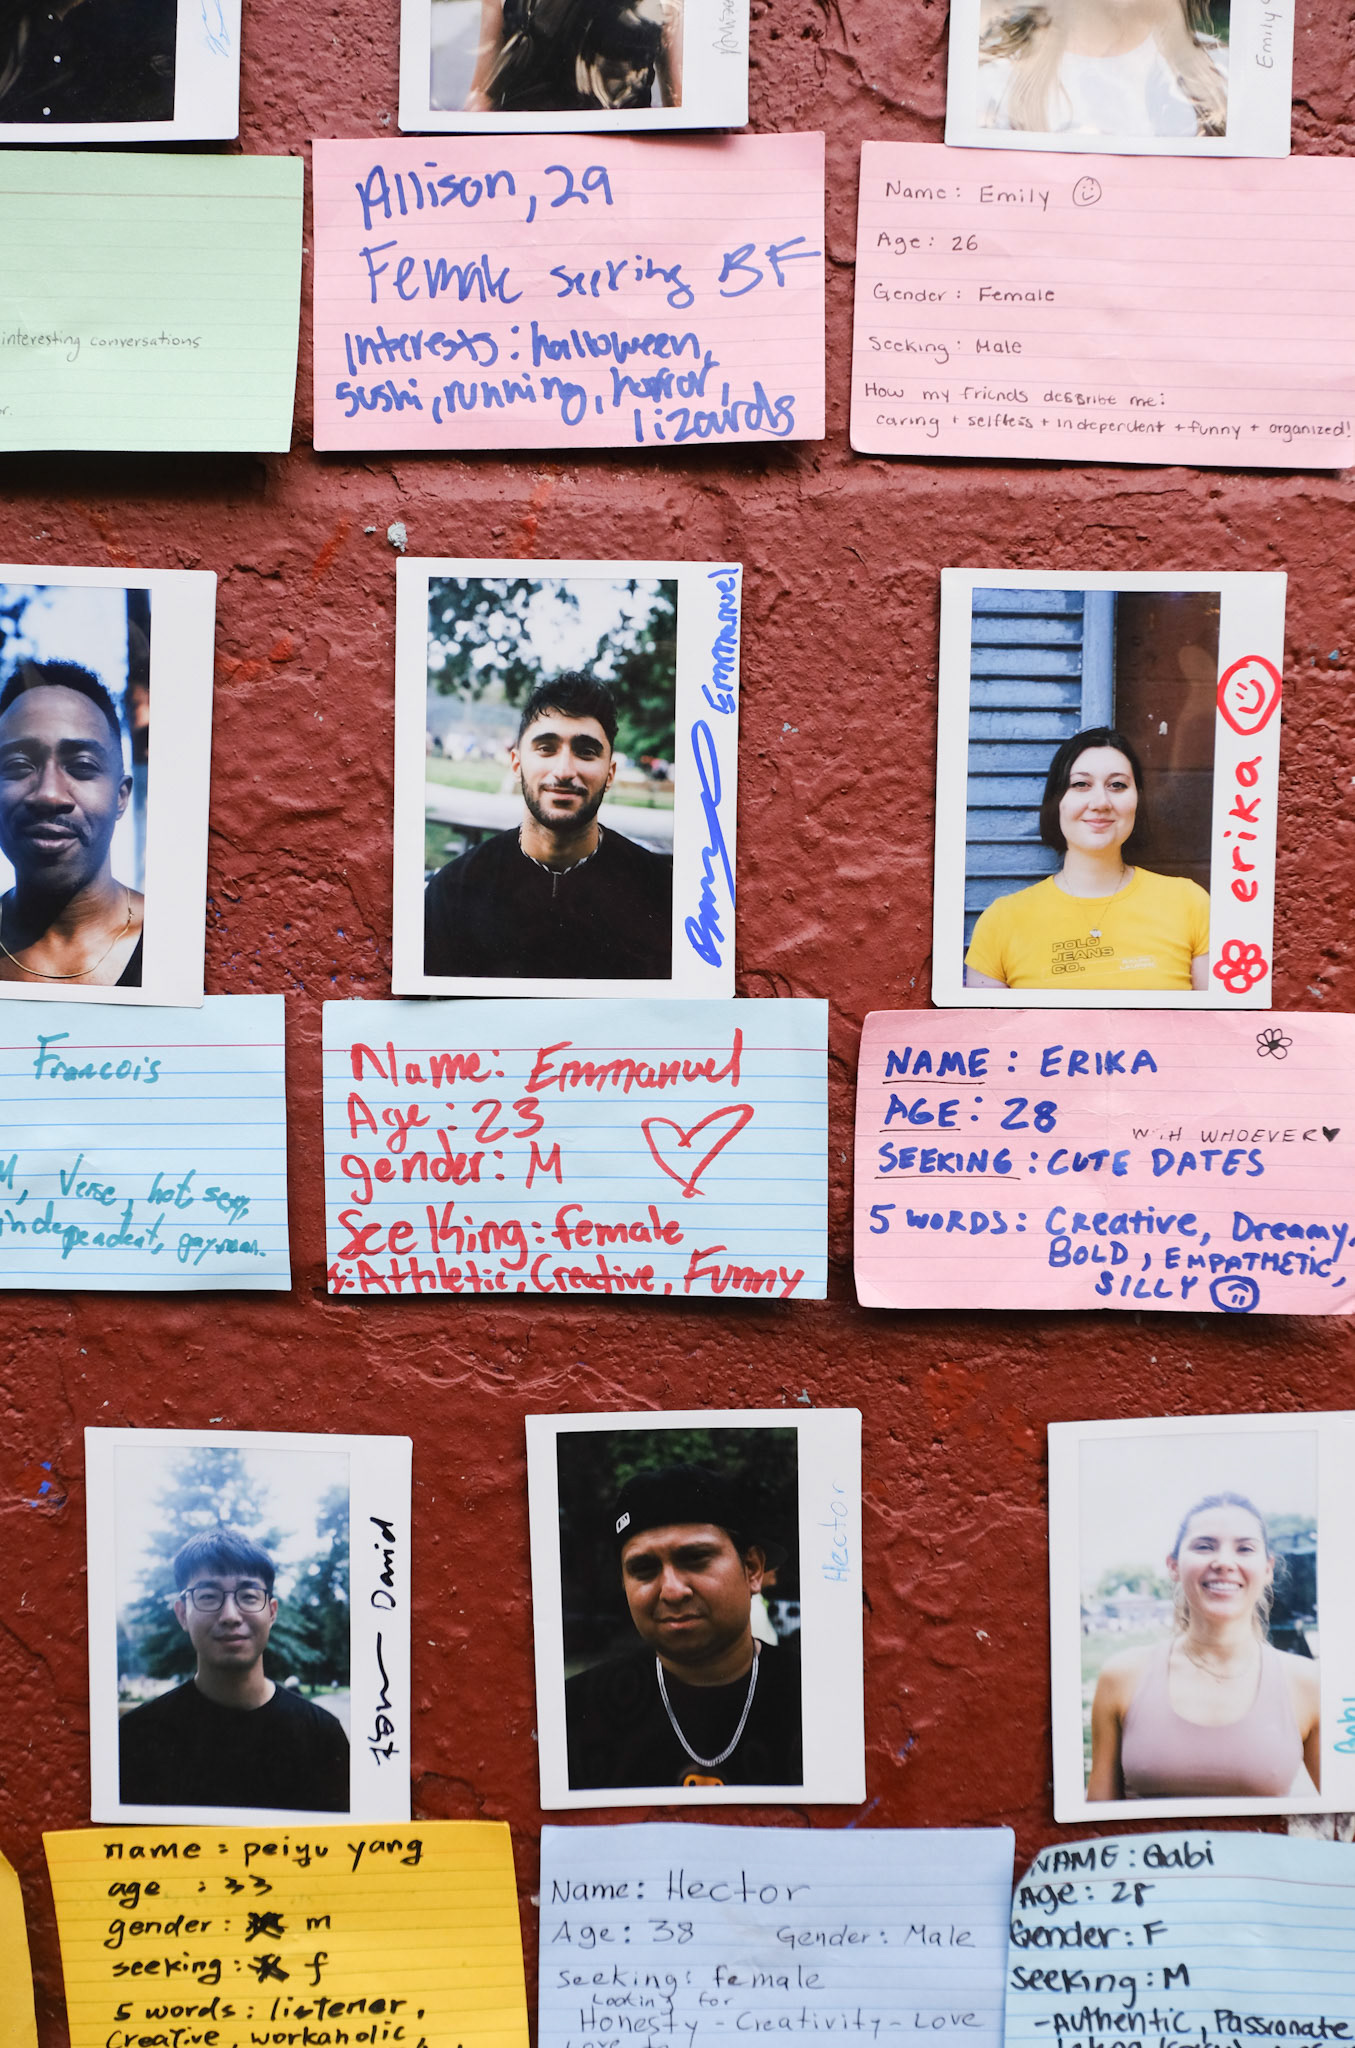 Emily
interesting conversations
Allison, 29
Female seeking BF
Interests: halloween,
sushi, running, horror,
lizards
Name: Emily
Age: 26
Gender: Female
Seeking: Male
How my friends describe me:
caring + selfless + independent + funny + organized!
Emmanuel
erika
POLO
JEANS
CO.
Francois
Verse, hot sexy,
independent, gayman.
Name: Emmanuel
Age: 23
gender: M
Seeking: female
Athletic, Creative, Funny
NAME: ERIKA
AGE: 28
WITH WHOEVER
SEEKING: CUTE DATES
5 WORDS: Creative, Dreamy,
BOLD, EMPATHETIC,
SILLY
David
Hector
Gabi
name = peiyu yang
age : 33
gender: m
seeking: f
5 words: listener,
Creative, workaholic,
Name: Hector
Age: 38 Gender: Male
Seeking: female
Looking for
Honesty - Creativity - Love
NAME: Gabi
Age: 28
Gender: F
Seeking: M
- Authentic, Passionate